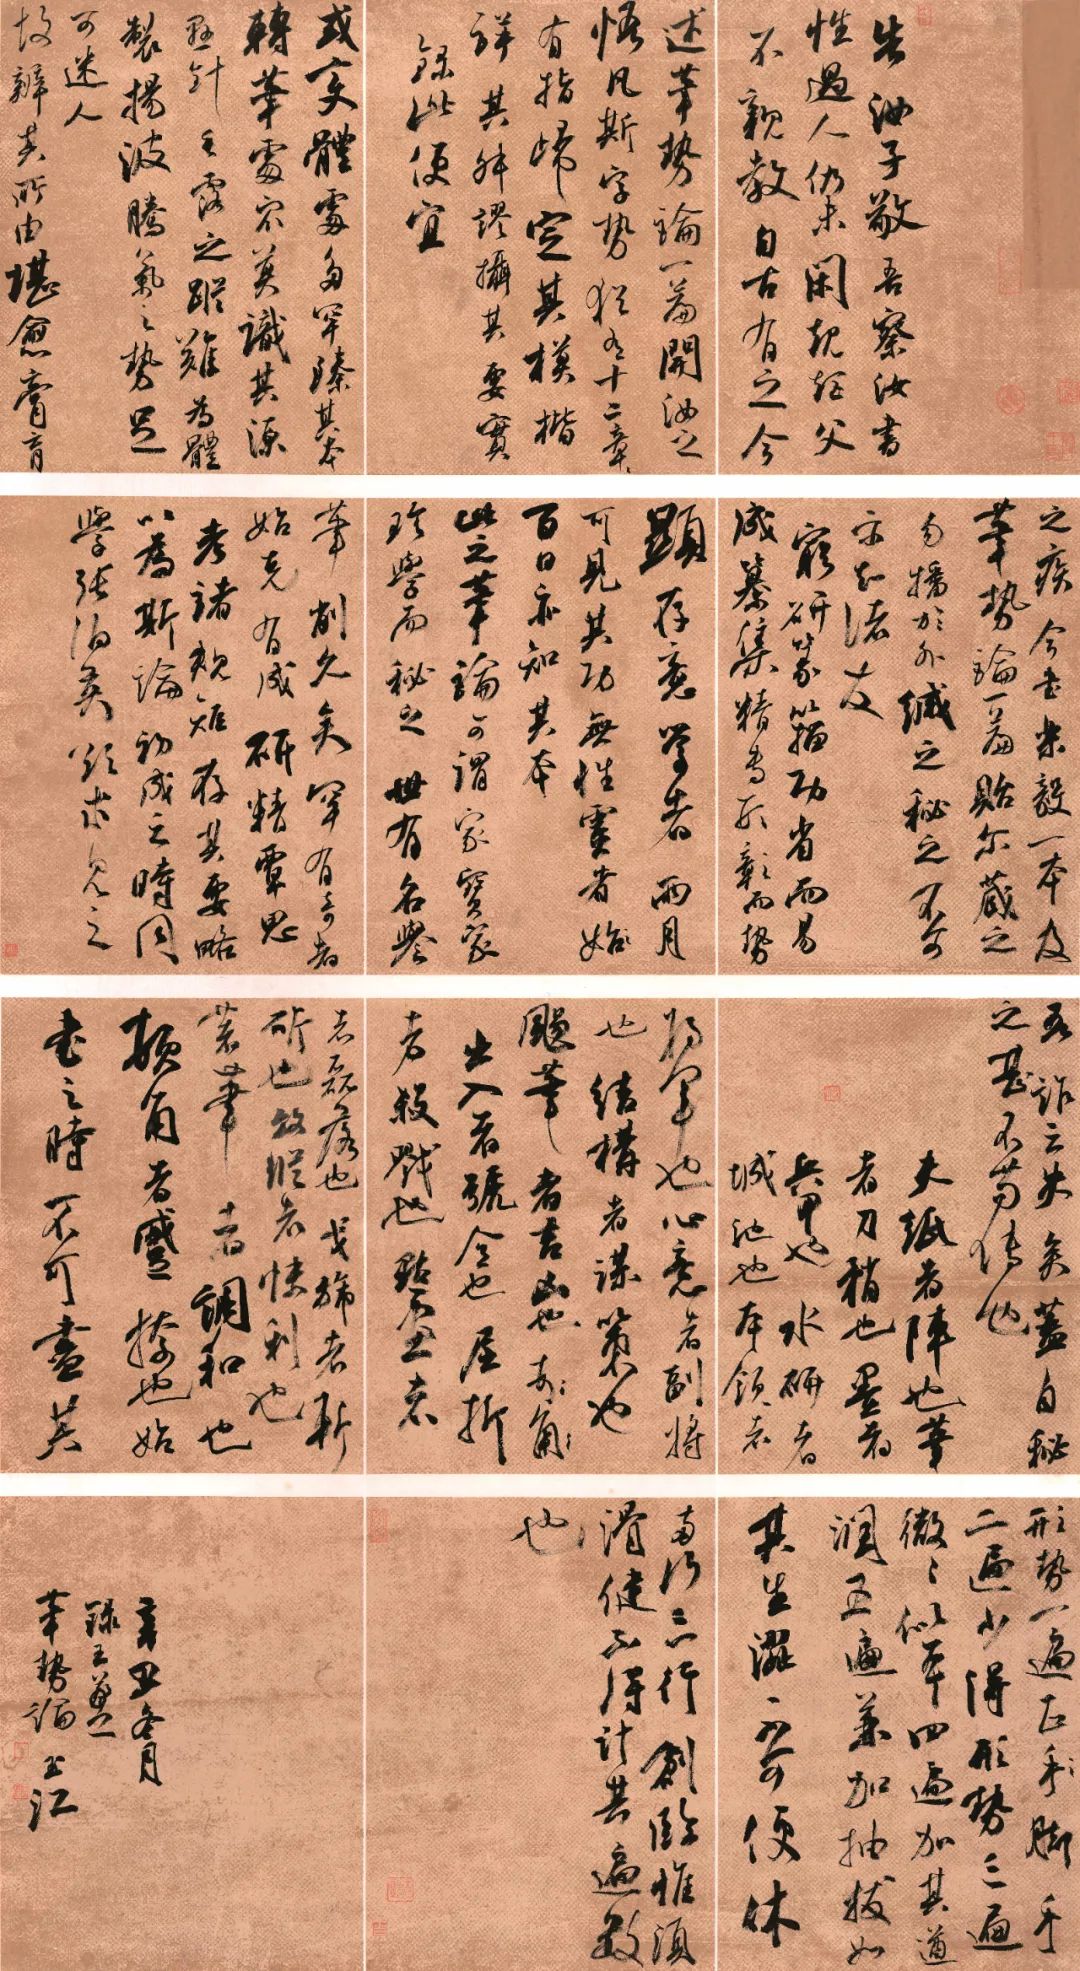 告汝子敬吾察汝书
性過人仍未閑規矩父
不親教自古有之今
述筆勢論一篇開汝之
悟凡斯字勢猶有十二章
有指歸定其模楷
詳其舛謬攝其要實
錄此便宜
或变體處多罕臻其本
轉筆處衆莫識其源
懸針垂露之蹤難為體
製揚波騰氣之勢足
可迷人
故辯其所由堪愈膏肓
之疾今書樂毅一本及
筆勢論一篇貽尔藏之
勿播於外緘之秘之不可
示知諸友
窮研篆籀功省而易
成纂集精專形彰而勢
顯存意學者兩月
可見其功無性靈者
百日亦知其本
此之筆論可謂家寶家
珍學而秘之世有名譽
筆削久矣罕有奇者
始克有成研精覃思
考諸規矩存其要略
以為斯論初成之時同
學張伯英欲求見之
吾詐云失矣蓋自秘
之甚不苟傳也
夫紙者陣也筆
者刀矟也墨者
兵甲也水研者
城池也本領者
將軍也心意者副將
也結構者謀策也
颺筆者吉凶也
出入者號令也屈折
者殺戮也點畫者
磊落也戈旆者斬
斫也放縱者快利也
著筆者調和也
頓角者蹙捺也始
書之時不可盡其
形勢一遍正手脚手
二遍少得形勢三遍
微微似本四遍加其遒
潤五遍兼加抽拔如
其生澀不可便休
兩行三行創臨惟須
滑健不得計其遍數
也
辛丑冬月
錄王羲之
筆勢論